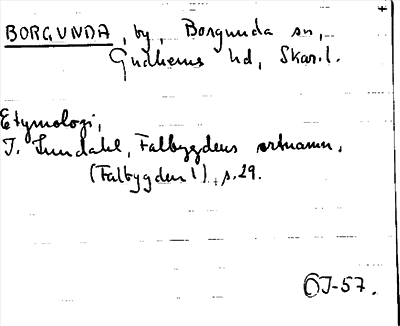 BORGUNDA, by, Borgunda sn,
Gudhems hd, Skar.l.
Etymologi,
I. Lundahl, Falbygdens ortnamn,
(Falbygden 1), s.29.
OJ-57.